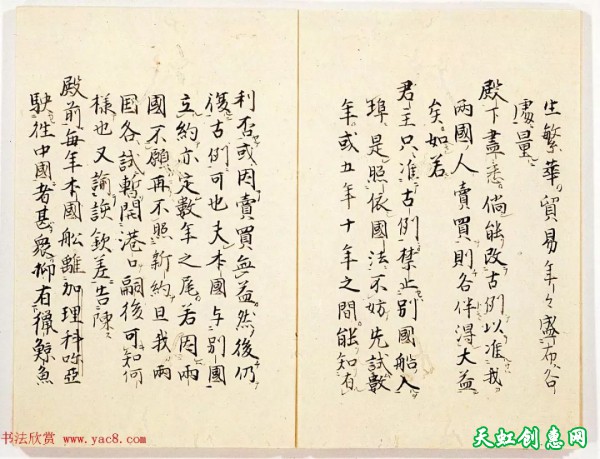 生繁華貿易年々盛布谷
處量
殿下盡悉倘能改古例以准我
兩國人賣買則各伴得大益
矣如若
君主只准古例禁止別國船入
埠是照依國法不妨先試數
年或五年十年之間能知有
利否或因賣買無益然後仍
復古例可也夫本國与別國
立約亦定數年之尾若因兩
國不願再不照新約且我兩
国各試暫開港口嗣後可知何
樣也又諭該欽差告陳
殿前每年本國船離加理科呢亞
駛往中國者甚眾抑有獵鯨魚
书法欣赏 www.yac8.com
天虹创意网